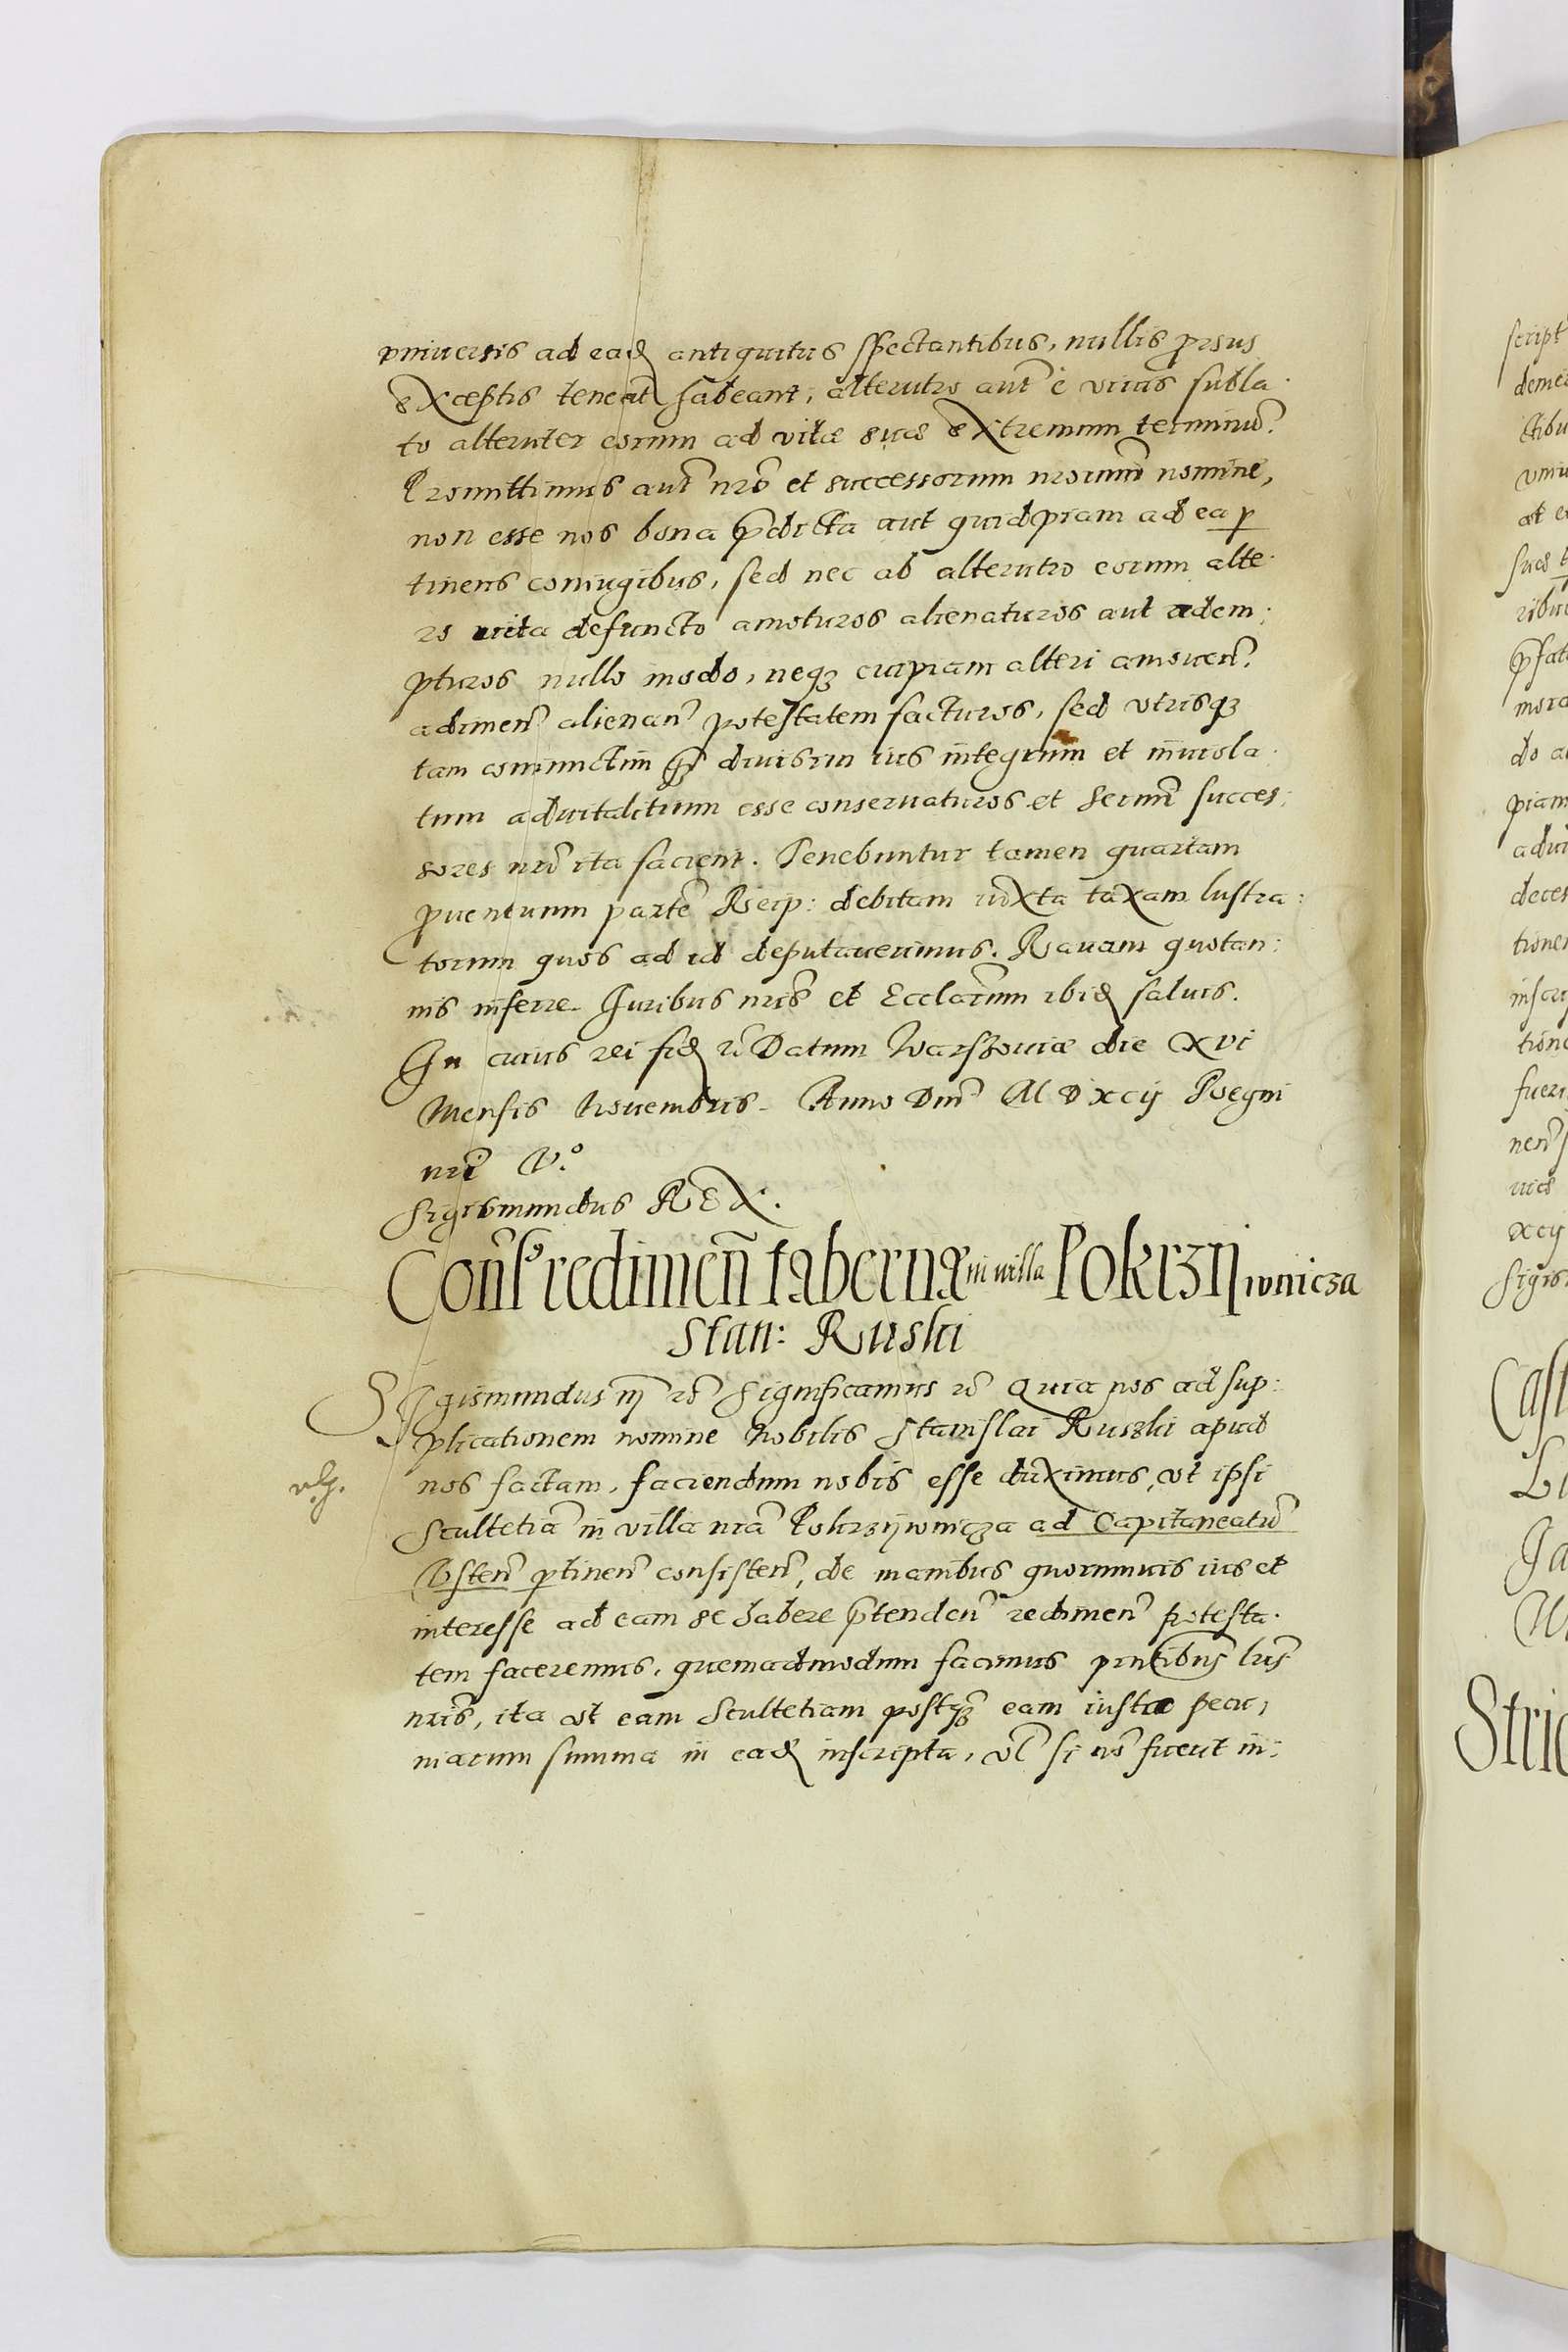 vniuersis ad ead antiquitus spectantibus, nullis prsus
exceptis teneat habeant, alterutro aut e viuis subla-
to alteruter eorum ad vitæ suæ extremum terminu.
Promittimus aut nro et successorum nrorum nomine,
non esse nos bona pdicta aut quidpiam ad ea p
tinens coniugibus, sed nec ab alterutro eorum alte-
ro vita defuncto amoturos alienaturos aut adem:
pturos nullo modo, neq3 cuipiam alteri amouen.
adimen alienan potestatem facturos, sed vtrisq3
tam coniunctim q3 diuisim ius integrum et inuiola-
tum aduitalitium esse conseruaturos et Sermi succes:
sores nri ita facient. Tenebuntur tamen quartam
prouentuum parte Reip: debitam iuxta taxam lustra:
torum quos ad id deputauerimus. Rauam quotan:
nis inferre. Juribus nris et Ecclarum ibid saluis.
In cuius rei fid rc Datum Warszouiæ die xvi
Mensis Nouembris. Anno Dni M D xcij Regni
nri V.º
Sigismundus REX.
Cons redimen tabernæ in villa Pokrzijwnicza
Stan: Ruski
Sigismundus iij rc Significamus rc Quia nos ad sup:
plicationem nomine Nobilis Stanislai Ruszki apud
nos factam, faciendum nobis esse duximus, vt ipsi
Scultetia in villa nra Pokrzijwnicza ad Capitaneatu
Osten ptinen consisten, de manibus quorumuis ius et
interesse ad eam se habere ptenden redimen potesta-
tem faceremus, quemadmodum facimus pntibus lris
nris, ita vt eam Scultetiam postq3 eam iusta pecu,
niarum summa in ead inscripta, vl si no fuerit in: